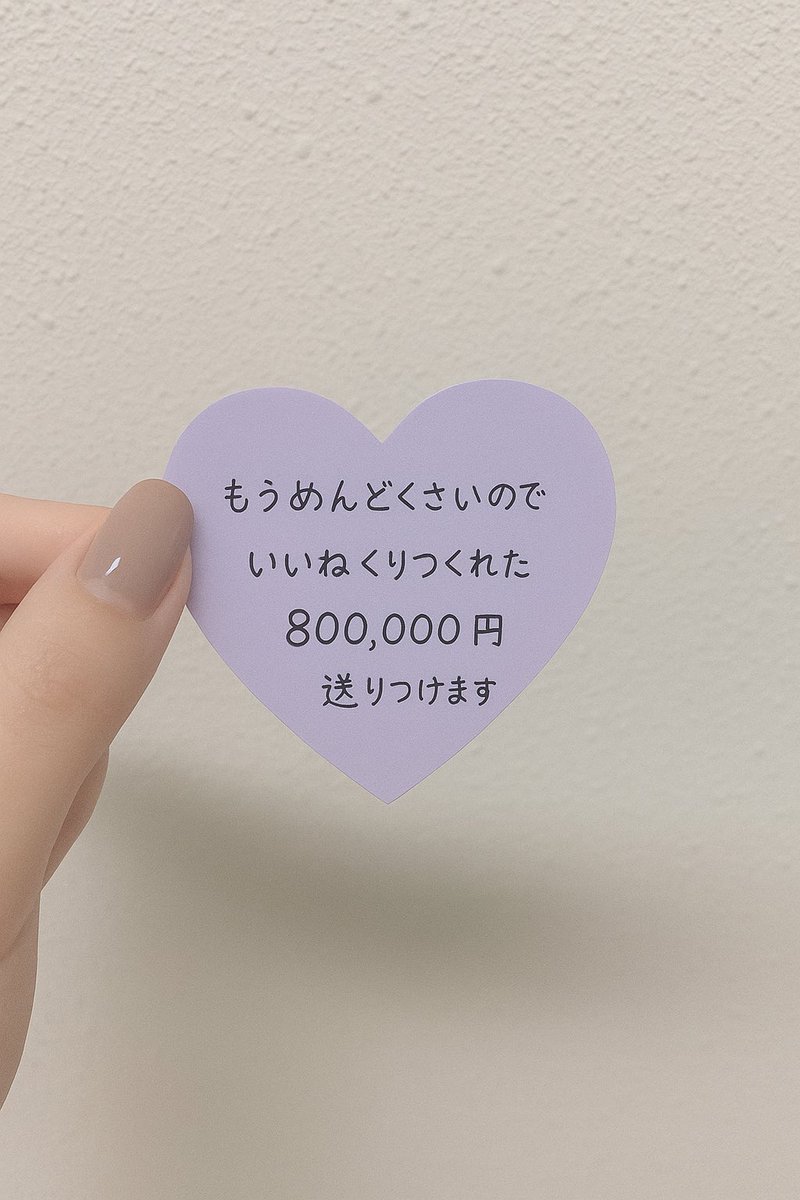 もうめんどくさいので
いいねくりつくれた
800,000円
送りつけます